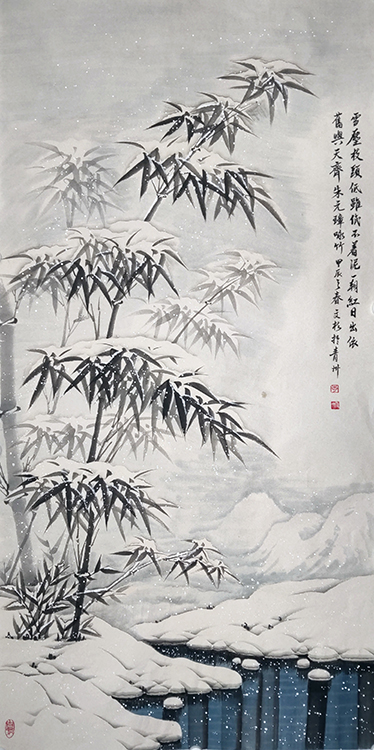 雪壓枝頭低雖低不着泥一朝紅日出依
舊與天齊 朱元璋咏竹 甲辰之春文杉於青州